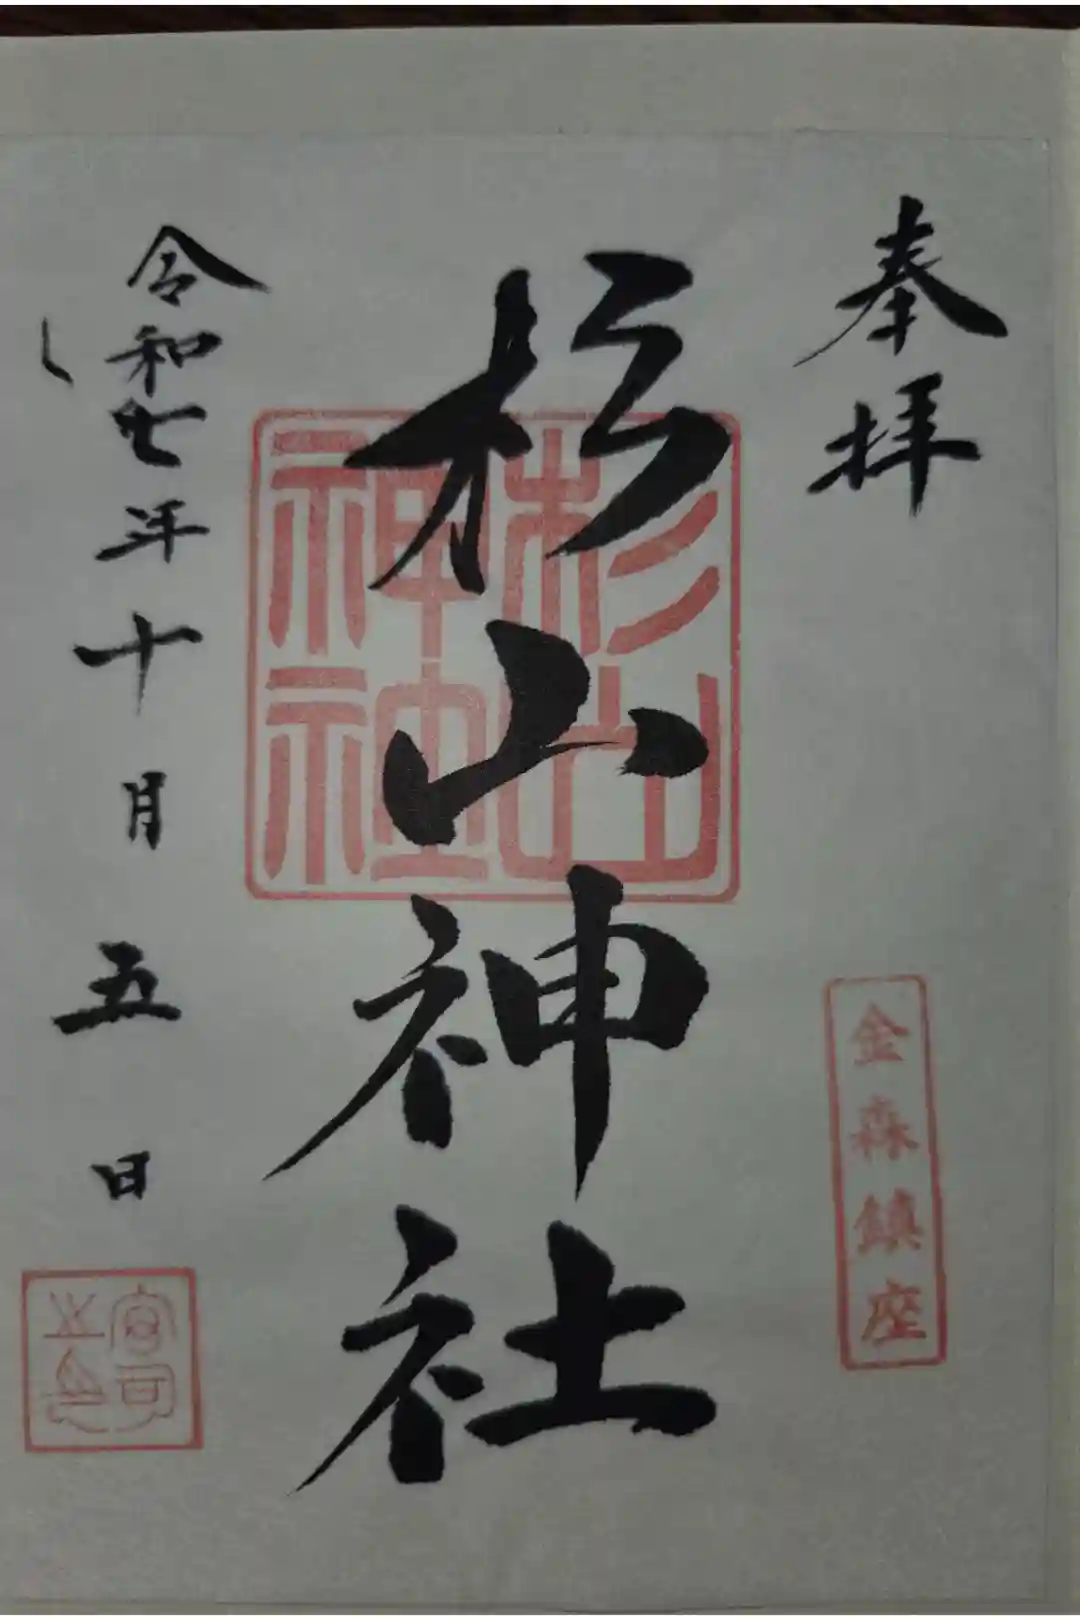 奉拝
金森鎮座
杉山神社
杉山
神社
令和七年十月五日
宮司
之印